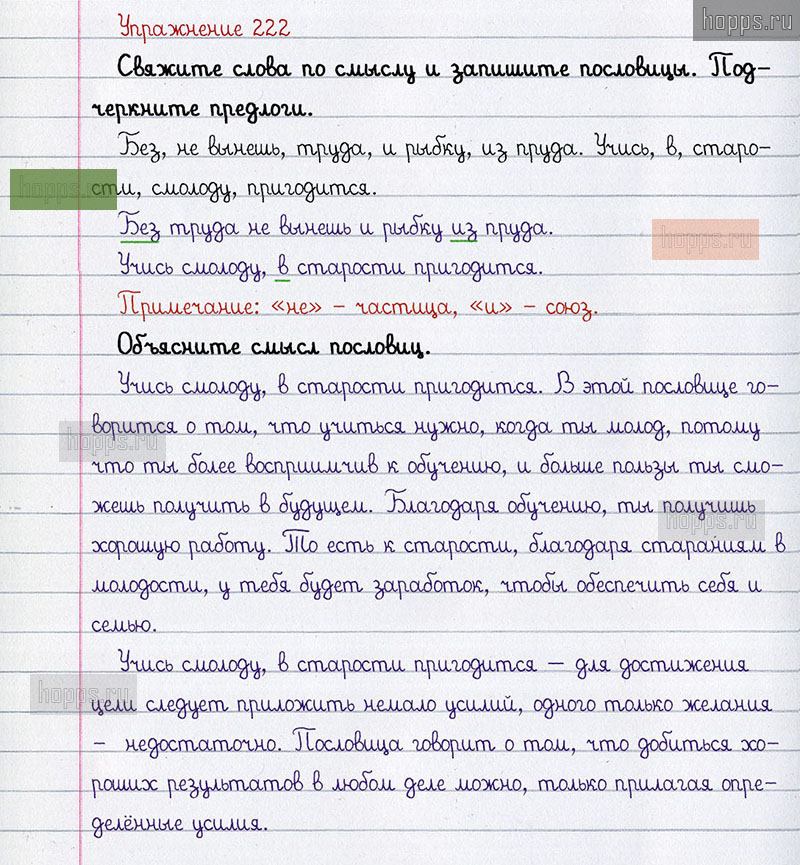 hopps.ru
Упражнение 222
Свяжите слова по смыслу и запишите пословицы. Под-
черкните предлоги.
Без, не вынешь, труда, и рыбку, из пруда. Учись, в, старо-
hopps.ru
сти, смолоду, пригодится.
Без труда не вынешь и рыбку из пруда.
hopps.ru
Учись смолоду, в старости пригодится.
Примечание: «не» – частица, «и» – союз.
Объясните смысл пословиц.
Учись смолоду, в старости пригодится. В этой пословице го-
ворится о том, что учиться нужно, когда ты молод, потому
hopps.ru
что ты более восприимчив к обучению, и больше пользы ты смо-
жешь получить в будущем. Благодаря обучению, ты получишь
hopps.ru
хорошую работу. То есть к старости, благодаря стараниям в
молодости, у тебя будет заработок, чтобы обеспечить себя и
семью.
Учись смолоду, в старости пригодится – для достижения
hopps.ru
цели следует приложить немало усилий, одного только желания
– недостаточно. Пословица говорит о том, что добиться хо-
раших результатов в любом деле можно, только прилагая опре-
делённые усилия.